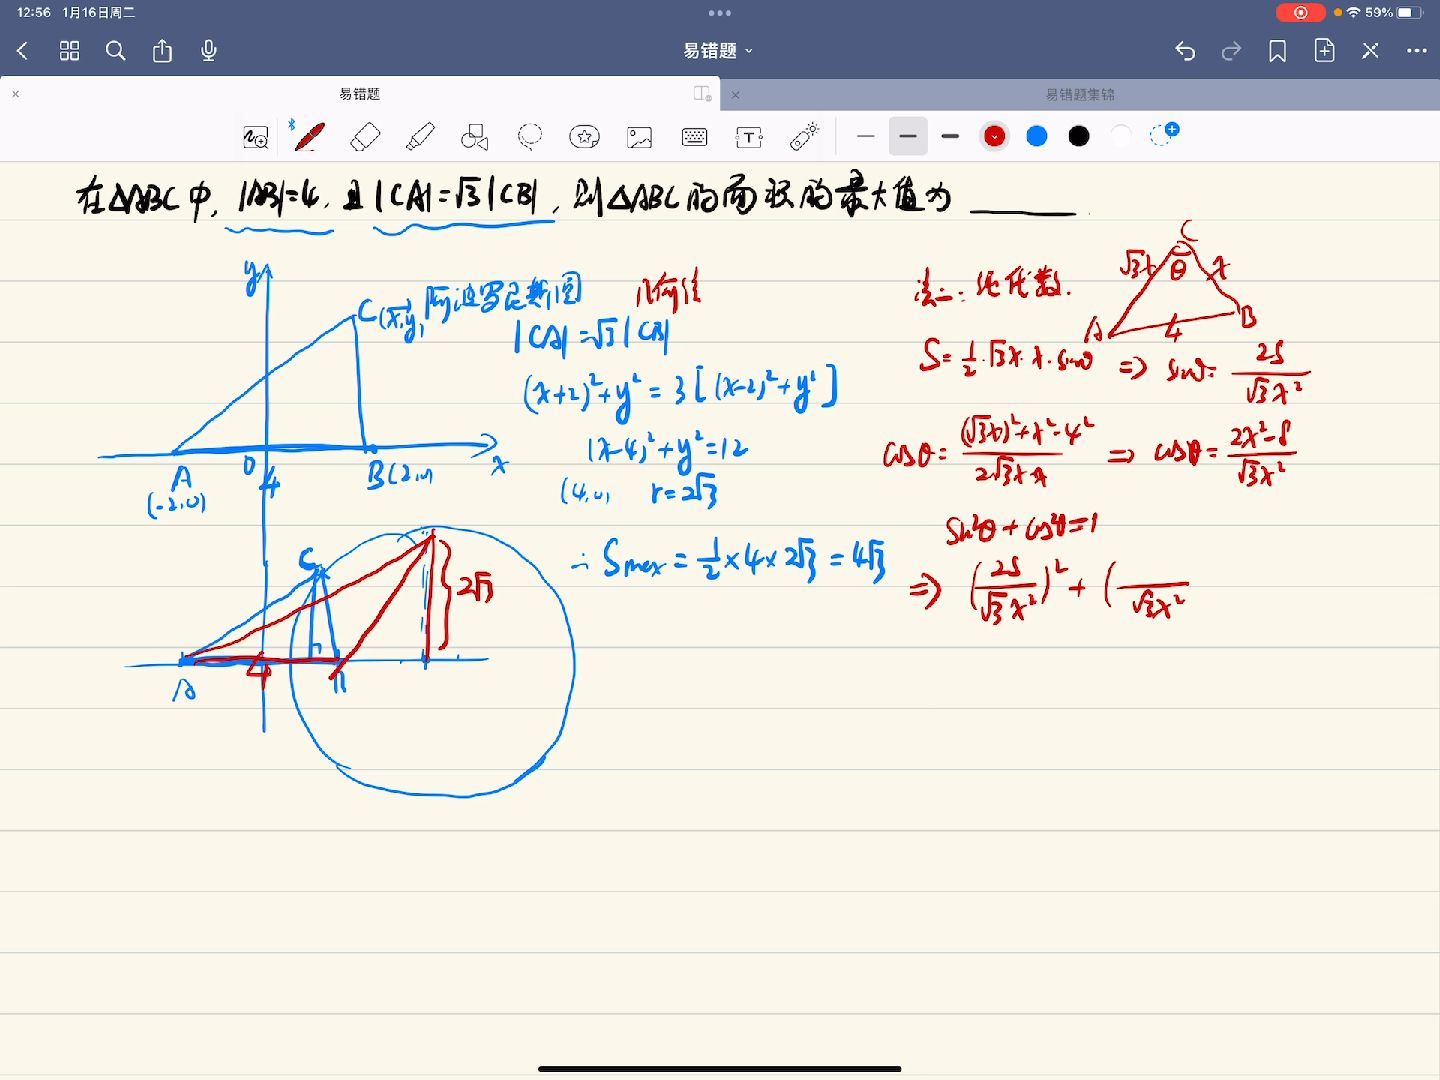 12:56 1月16日周二
59%
易错题
易错题
易错题集锦
在△ABC中, |AB|=4, 且|CA|=√3|CB|, 则△ABC的面积的最大值为 ______.
y
C(x,y)
阿波罗尼斯圆
几何法
|CA|=√3|CB|
(x+2)²+y²=3[(x-2)²+y²]
(x-4)²+y²=12
(4,0) r=2√3
∴ Smax = 1/2×4×2√3=4√3
A
(-2,0)
0
4
B(2,0)
x
C
2√3
4
A
B
法二: 纯代数.
C
√3x
θ
x
A
4
B
S=1/2·√3x·x·sinθ ⇒ sinθ=2S/√3x²
cosθ=((√3x)²+x²-4²)/(2√3x·x) ⇒ cosθ=(2x²-8)/√3x²
sin²θ+cos²θ=1
⇒ (2S/√3x²)²+( /√3x²